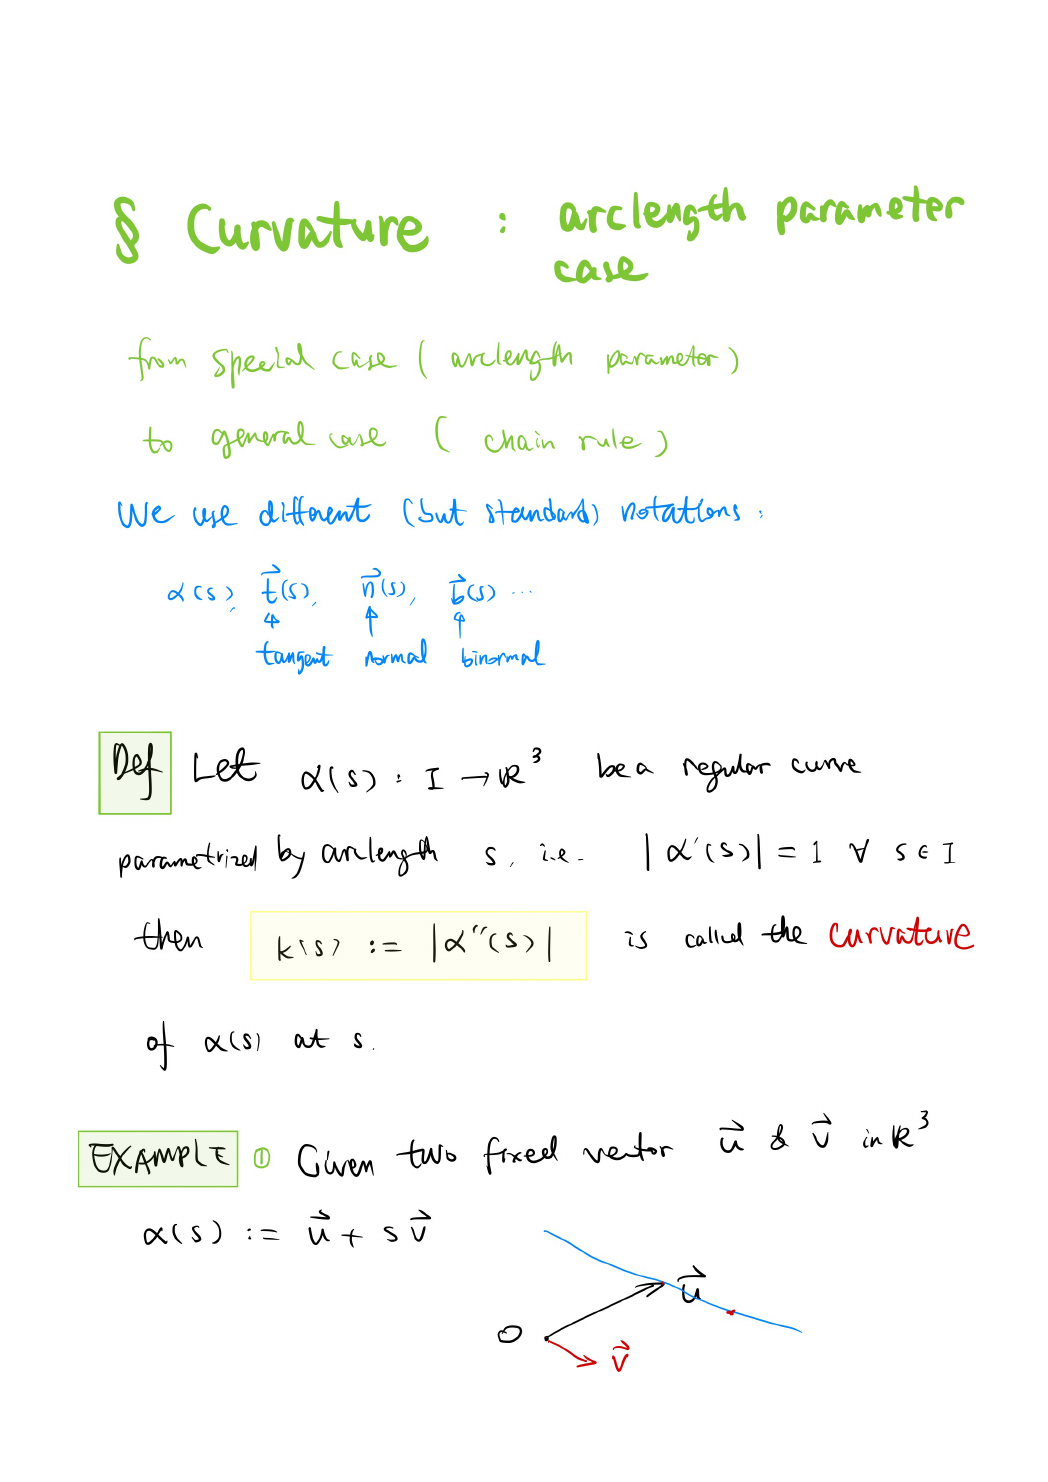 § Curvature : arclength parameter
case
from special case ( arclength parameter )
to general case ( chain rule )
We use different (but standard) notations :
α(s), t⃗(s), n⃗(s), b⃗(s) ...
tangent normal binormal
Def Let α(s) : I → ℝ³ be a regular curve
parametrized by arclength s, i.e. |α'(s)| = 1 ∀ s ∈ I
then k(s) := |α''(s)| is called the curvature
of α(s) at s.
EXAMPLE ① Given two fixed vector u⃗ & v⃗ in ℝ³
α(s) := u⃗ + s v⃗
u⃗
O
v⃗